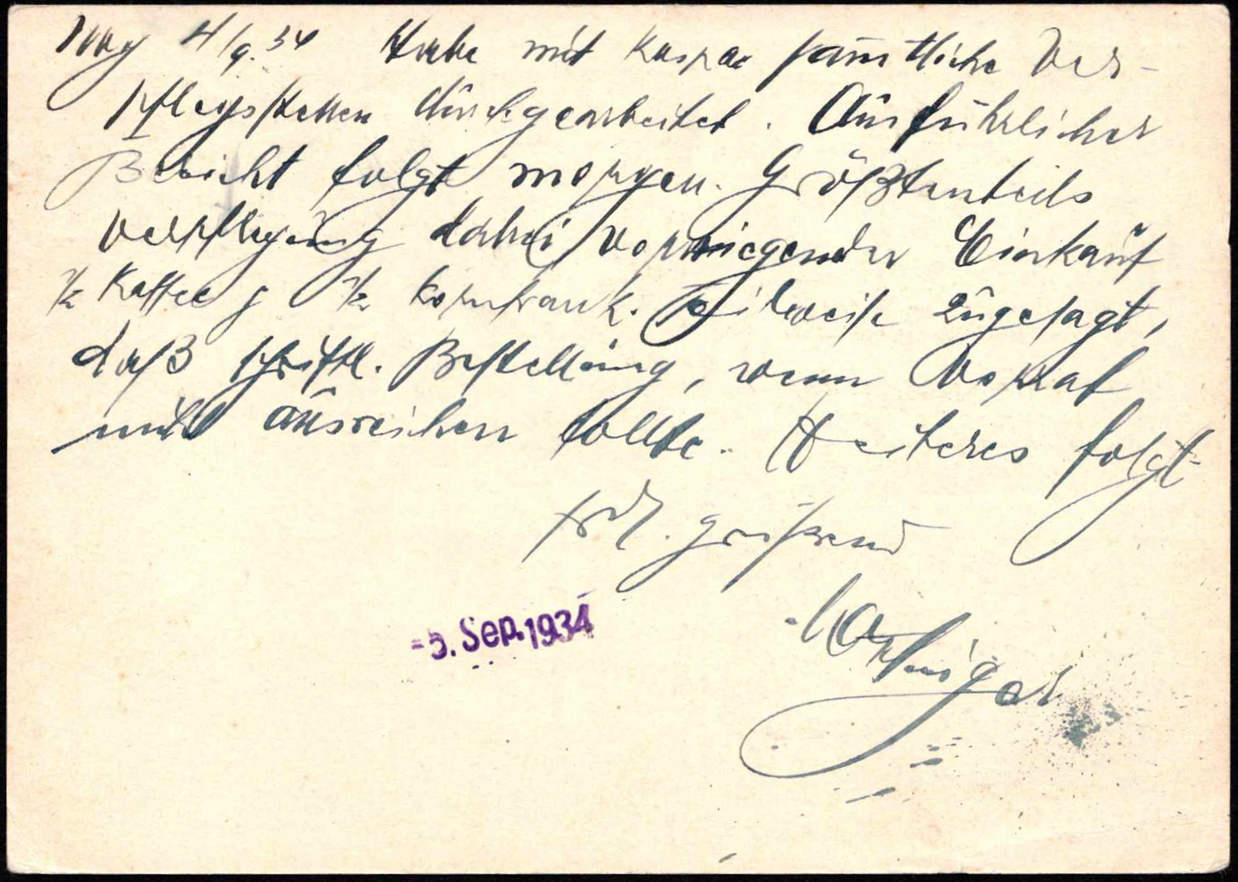 4/9.34 Habe mit Kaspar sämtliche Ver-
pflegsstellen durchgearbeitet. Ausführlicher
Bericht folgt morgen. Größtenteils
Verpflegung dabei vorwiegender Einkauf
½ Kaffee ½ Kornfrank. Teilweise zugesagt,
daß schriftl. Bestellung, wenn Vorrat
nicht ausreichen sollte. Weiteres folgt.
frdl. grüßend
-5. Sep. 1934